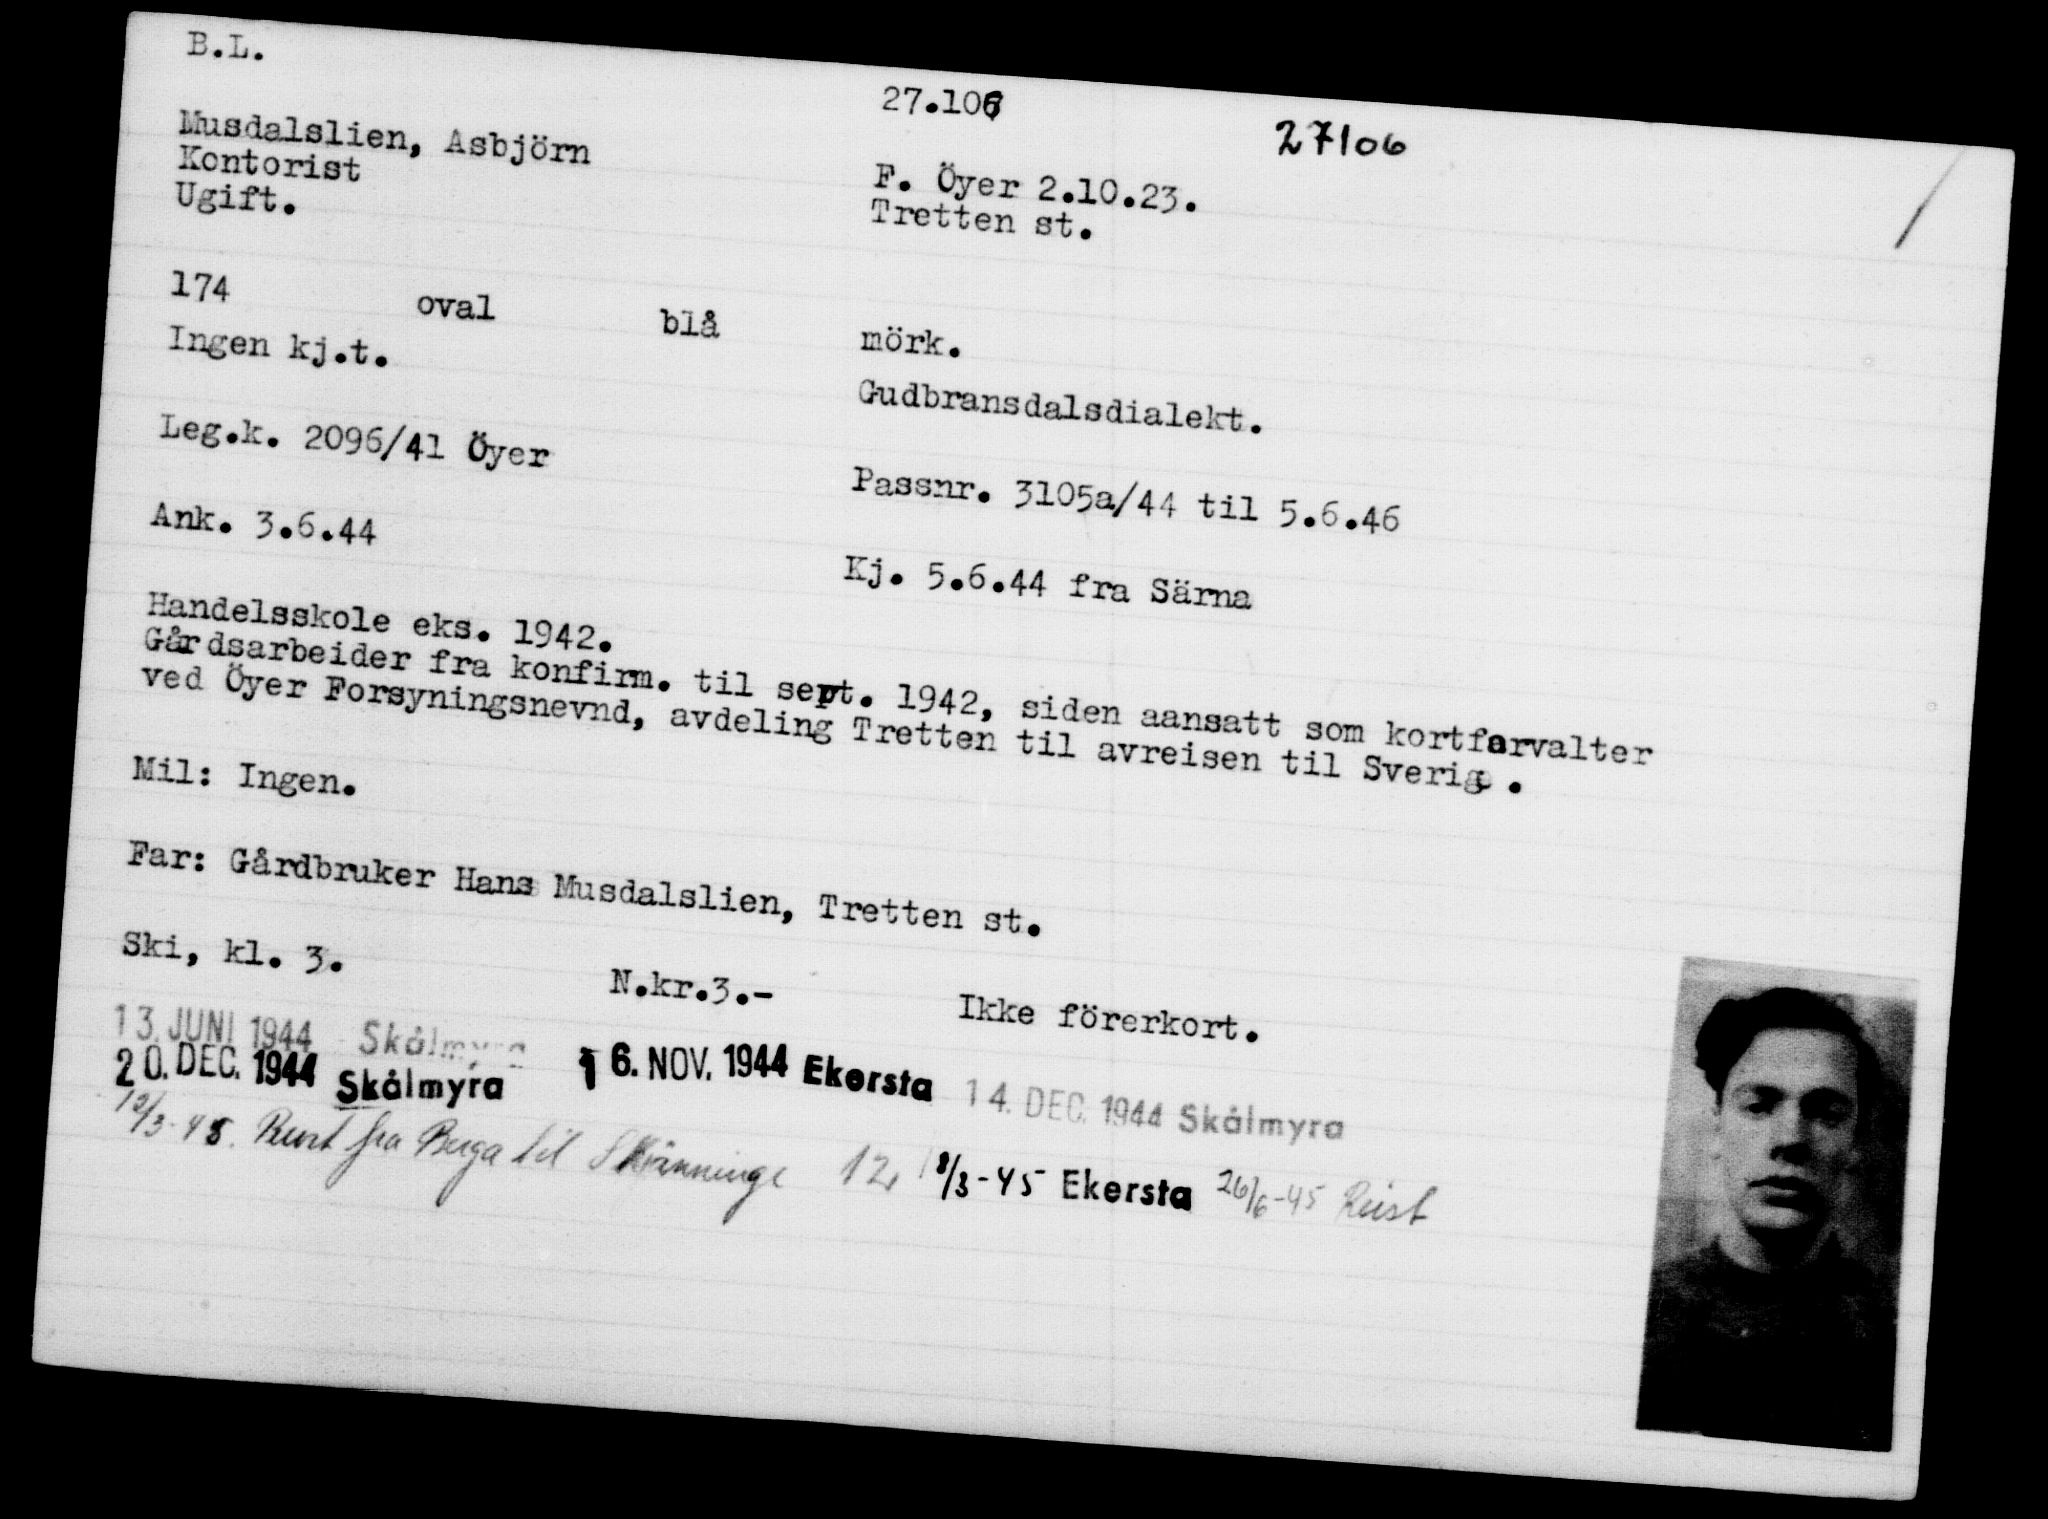 B.L.
27.106
27106
Musdalslien, Asbjörn
F. Öyer 2.10.23.
Kontorist
Tretten st.
Ugift.
174 oval blå mörk.
Ingen kj.t. Gudbransdalsdialekt.
Leg.k. 2096/41 Öyer Passnr. 3105a/44 til 5.6.46
Ank. 3.6.44 Kj. 5.6.44 fra Särna
Handelsskole eks. 1942.
Gårdsarbeider fra konfirm. til sept. 1942, siden aansatt som kortforvalter
ved Öyer Forsyningsnevnd, avdeling Tretten til avreisen til Sverige .
Mil: Ingen.
Far: Gårdbruker Hans Musdalslien, Tretten st.
Ski, kl. 3. N.kr.3.- Ikke förerkort.
13. JUNI 1944 Skålmyra
20. DEC. 1944 Skålmyra 16. NOV. 1944 Ekersta 14. DEC. 1944 Skålmyra
/3-45. Reist fra Berga til Skänninge 12, /3-45 Ekersta 26/6-45 Reist